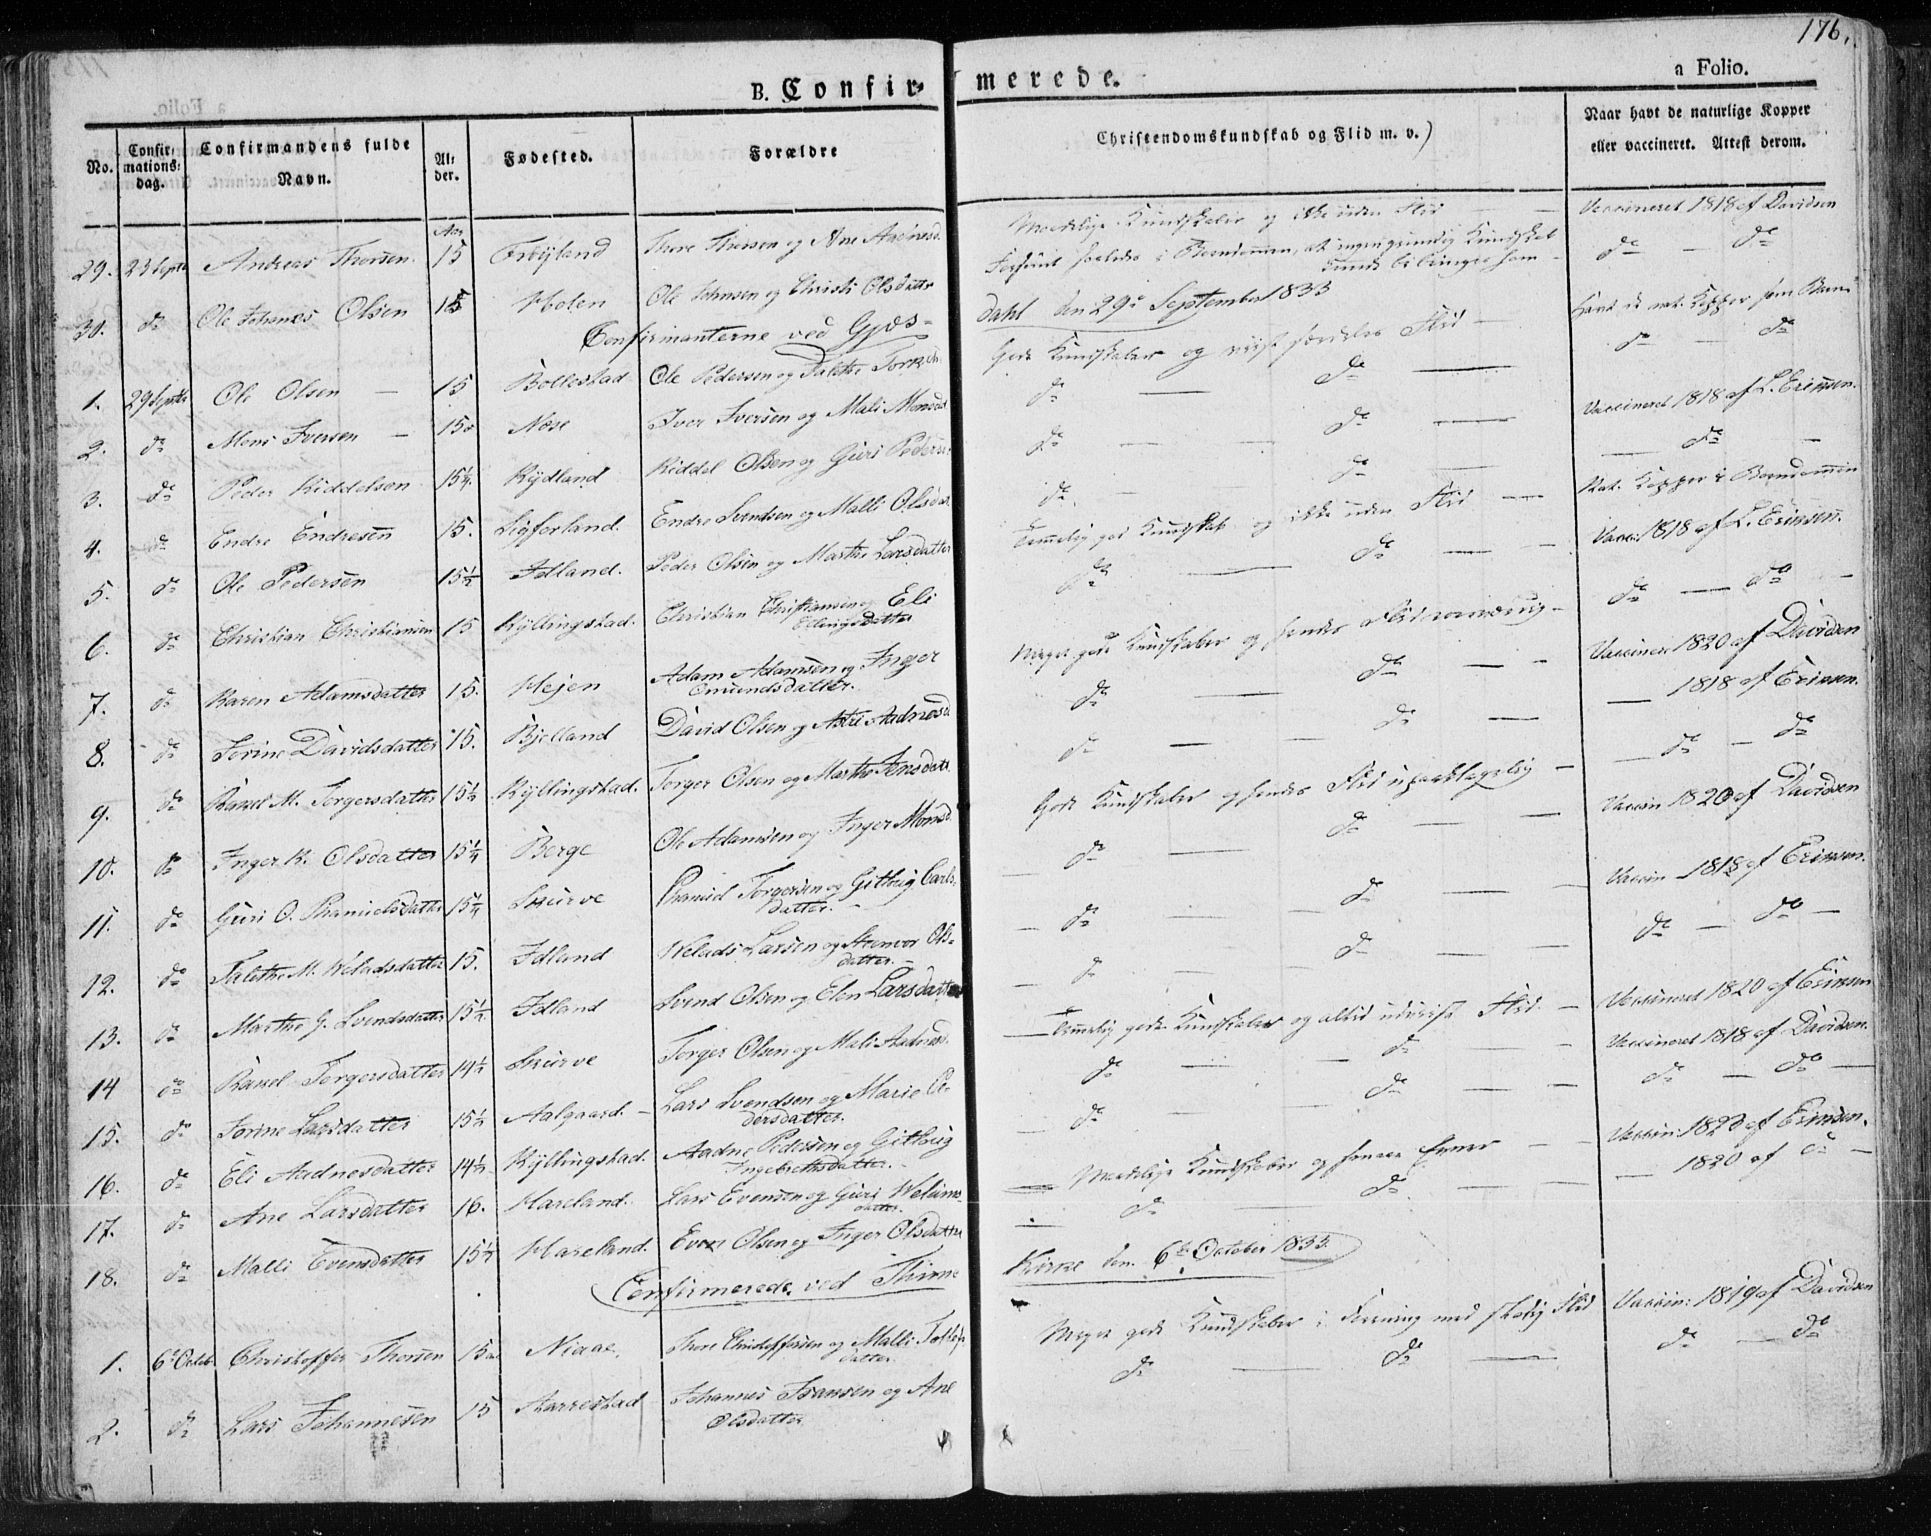 176.
B. Confirmerede.
a Folio.
No. Confirmations: dag. Confirmandens fulde Navn. Alder. Fødested. Forældre Christendomskundskab og Flid m. v.) Naar havt de naturlige Kopper eller vaccineret. Attest derom.
29. 23 Septbr Andreas Thorsen. 15 Aar Frøyland Thore Thorsen og Ane Aadnesd. Maadelige Kundskaber og ikke uden Flid Vaccineret 1818 af Davidsen
30. do Ole Johanes Olsen 15 Holen Ole Johnsen og Christi Olsdatter do — do
Confirmanterne ved Gjesdahl den 29de September 1833
1. 29 Septbr Ole Olsen — 15 Bollestad Ole Pedersen og Talethe Torkelsd. Gode Kundskaber og Flid havt de nat. Kopper som Barn
2. do Mons Iversen — 15 Næse Iver Iversen og Mali Monsd. do — do do — do
3. do Peder Kiddelsen 15¼ Rydland Kiddel Olsen og Guri Peders. do — do Vaccineret 1818 af L. Eriksen.
4. do Endre Endresen 15. Ligforland. Endre Svendsen og Malli Olsdat do — do do
5. do Ole Pedersen 15½ Idland. Peder Olsen og Marthe Larsdatter Temmelig god Kundskab og ikke uden Flid Nat. Kopper i Barndommen
6. do Christian Christiansen 15 Kyllingstad. Christian Christiansen og Eli Ellingsdatter do — do Vacci: 1818 af L. Eriksen.
7. do Karen Adamsdatter 15. Højen Adam Adamsen og Inger Omundsdatter. Meget gode Kundskaber og hendes Flid do — do
8. do Serine Davidsdatter 15. Bjelland David Olsen og Astri Aadnesd do — do Vaccineret 1820 af Davidsen
9. do Rakel M. Torgersdatter 15½ Kyllingstad. Torger Olsen og Marthe Jensdatt. do — do 1818 af Eriksen.
10. do Inger K. Olsdatter 15¼ Berge Ole Adamsen og Inger Monsd. Gode Kundskaber og hendes Flid upaaklagelig do — do
11. do Guri O. Thamielsdatter 15¼ Skurve Thamiel Torgersen og Gitlaug Carlsdatter. do — do Vaccin 1820 af Davidsen
12. do Talethe M. Weladsdatter 15. Idland Welads Larsen og Steenvor Olsdatter. do — do Vaccin 1818 af Eriksen.
13. do Marthe G. Svendsdatter 15½ Idland Svend Olsen og Elen Larsdatter do — do do — do
14 do Rakel Torgersdatter 14½ Skurve Torger Olsen og Mali Aadnesd. Temmelig gode Kundskaber og altid udviist Flid Vaccineret 1820 af Eriksen
15. do Serine Larsdatter 15½ Aalgaard. Lars Svendsen og Marie Pedersdatter. do — do Vaccineret 1818 af Davidsen.
16. do Eli Aadnesdatter 14½ Kyllingstad. Aadne Pedersen og Gitlaug Ingebrethsdatter. do — do do — do
17. do Ane Larsdatter 16. Haveland. Lars Evensen og Guri datter. Maadelige Kundskaber og Vaccin: 1820 af Eriksen.
18. do Malli Evensdatter 15½ Haveland. Even Olsen og Inger Olsdatter do — do 1820 af do
Confirmerede ved Thime Kirke den 6te October 1833.
1. 6te Octob. Christoffer Thorsen 15 Niaae, Thore Christoffersen og Malli datter. Meget gode Kundskaber i med Flid Vaccin: 1819 af Davidsen
2. do Lars Johannesen 15 Aarrestad Johannes Isaksen og Ane Olsdatter do — do do — do